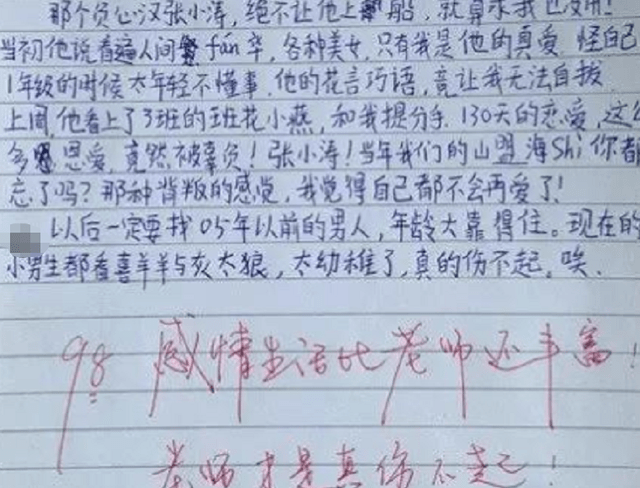 那个负心汉张小涛,绝不让他上船,就算求我也没用!
当初他说看遍人间繁 fán 华,各种美女,只有我是他的真爱.怪自己
1年级的时候太年轻不懂事,他的花言巧语,竟让我无法自拔
上周,他看上了3班的班花小燕,和我提分手.130天的恋爱,这么
多恩爱,竟然被辜负!张小涛!当年我们的山盟海Shi你都
忘了吗?那种背叛的感觉,我觉得自己都不会再爱了!
以后一定要找05年以前的男人,年龄大靠得住。现在的
小男生都看喜羊羊与灰太狼,太幼稚了,真的伤不起。唉.
98 感情生活比老师还丰富!
老师才是真伤不起!